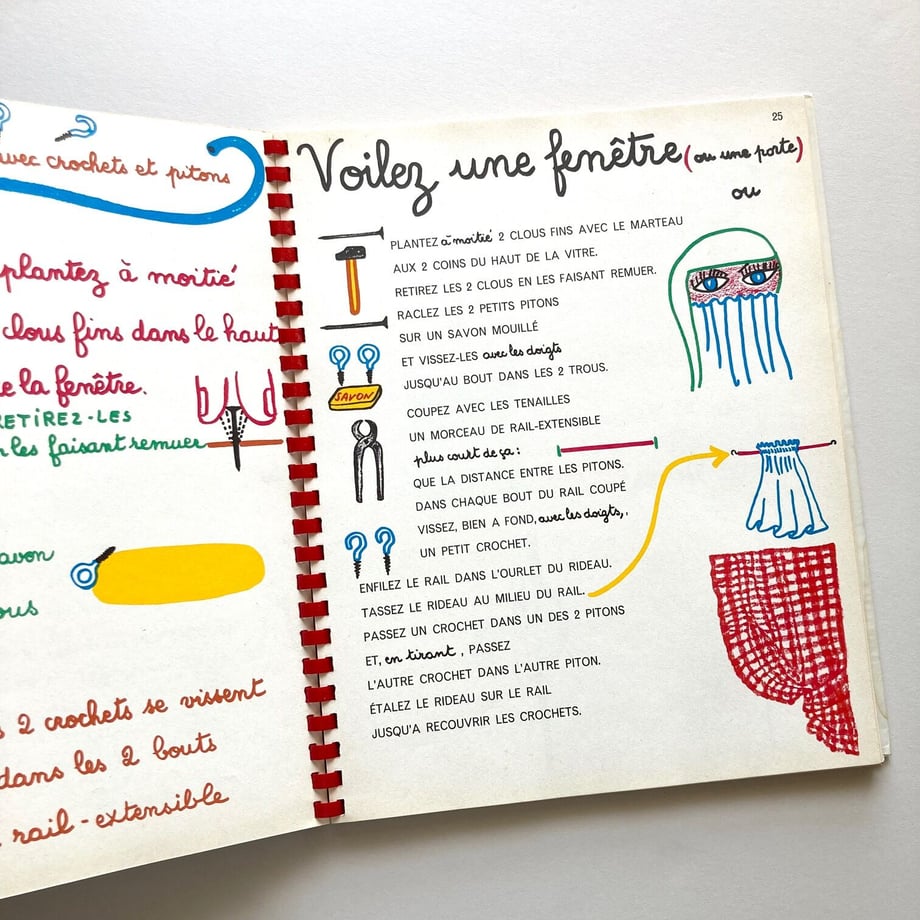 avec crochets et pitons
plantez à moitié
clous fins dans le haut
de la fenêtre.
RETIREZ-LES
en les faisant remuer
savon
2 crochets se vissent
dans les 2 bouts
rail-extensible
25
Voilez une fenêtre (ou une porte)
ou
PLANTEZ à moitié 2 CLOUS FINS AVEC LE MARTEAU
AUX 2 COINS DU HAUT DE LA VITRE.
RETIREZ LES 2 CLOUS EN LES FAISANT REMUER.
RACLEZ LES 2 PETITS PITONS
SUR UN SAVON MOUILLÉ
ET VISSEZ-LES avec les doigts
JUSQU'AU BOUT DANS LES 2 TROUS.
SAVON
COUPEZ AVEC LES TENAILLES
UN MORCEAU DE RAIL-EXTENSIBLE
plus court de ça :
QUE LA DISTANCE ENTRE LES PITONS.
DANS CHAQUE BOUT DU RAIL COUPÉ
VISSEZ, BIEN A FOND, avec les doigts,
UN PETIT CROCHET.
ENFILEZ LE RAIL DANS L'OURLET DU RIDEAU.
TASSEZ LE RIDEAU AU MILIEU DU RAIL.
PASSEZ UN CROCHET DANS UN DES 2 PITONS
ET, en tirant, PASSEZ
L'AUTRE CROCHET DANS L'AUTRE PITON.
ÉTALEZ LE RIDEAU SUR LE RAIL
JUSQU'A RECOUVRIR LES CROCHETS.